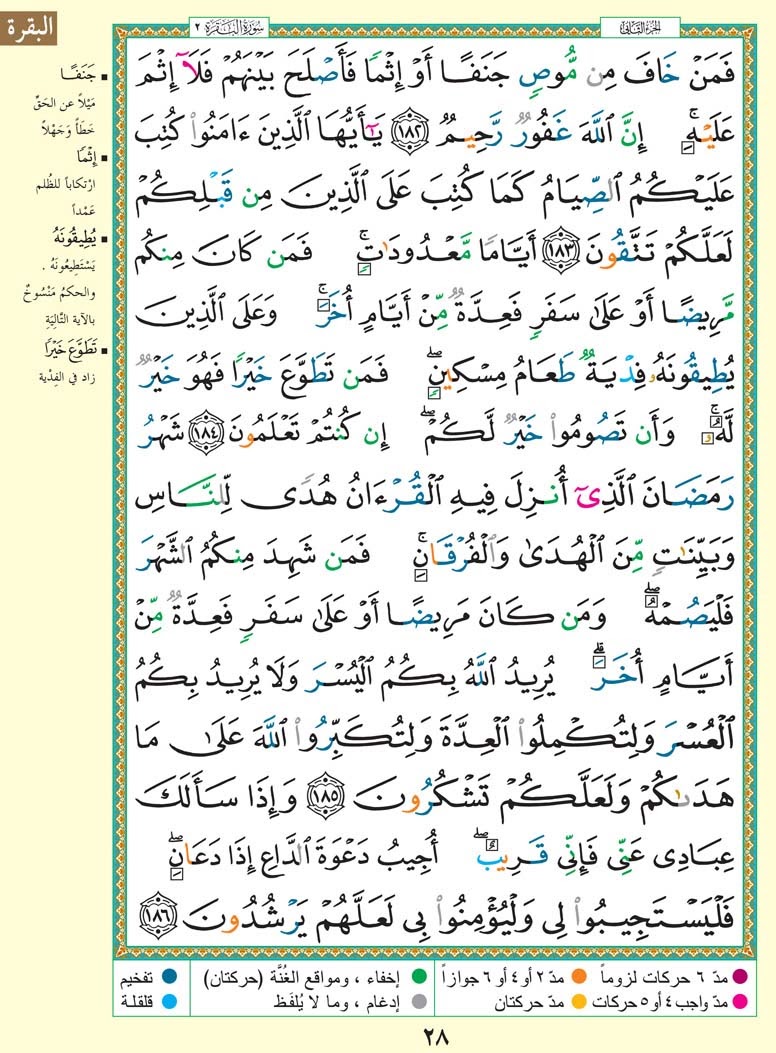 البقرة
الجزء الثاني
سورة البقرة ٢
فَمَنْ خَافَ مِن مُّوصٍ جَنَفًا أَوْ إِثْمًا فَأَصْلَحَ بَيْنَهُمْ فَلَآ إِثْمَ
عَلَيْهِ ۚ إِنَّ ٱللَّهَ غَفُورٌ رَّحِيمٌ ١٨٢ يَـٰٓأَيُّهَا ٱلَّذِينَ ءَامَنُوا۟ كُتِبَ
عَلَيْكُمُ ٱلصِّيَامُ كَمَا كُتِبَ عَلَى ٱلَّذِينَ مِن قَبْلِكُمْ
لَعَلَّكُمْ تَتَّقُونَ ١٨٣ أَيَّامًا مَّعْدُودَٰتٍ ۚ فَمَن كَانَ مِنكُم
مَّرِيضًا أَوْ عَلَىٰ سَفَرٍ فَعِدَّةٌ مِّنْ أَيَّامٍ أُخَرَ ۚ وَعَلَى ٱلَّذِينَ
يُطِيقُونَهُۥ فِدْيَةٌ طَعَامُ مِسْكِينٍ ۖ فَمَن تَطَوَّعَ خَيْرًا فَهُوَ خَيْرٌ
لَّهُۥ ۚ وَأَن تَصُومُوا۟ خَيْرٌ لَّكُمْ ۖ إِن كُنتُمْ تَعْلَمُونَ ١٨٤ شَهْرُ
رَمَضَانَ ٱلَّذِىٓ أُنزِلَ فِيهِ ٱلْقُرْءَانُ هُدًى لِّلنَّاسِ
وَبَيِّنَـٰتٍ مِّنَ ٱلْهُدَىٰ وَٱلْفُرْقَانِ ۚ فَمَن شَهِدَ مِنكُمُ ٱلشَّهْرَ
فَلْيَصُمْهُ ۖ وَمَن كَانَ مَرِيضًا أَوْ عَلَىٰ سَفَرٍ فَعِدَّةٌ مِّنْ
أَيَّامٍ أُخَرَ ۗ يُرِيدُ ٱللَّهُ بِكُمُ ٱلْيُسْرَ وَلَا يُرِيدُ بِكُمُ
ٱلْعُسْرَ وَلِتُكْمِلُوا۟ ٱلْعِدَّةَ وَلِتُكَبِّرُوا۟ ٱللَّهَ عَلَىٰ مَا
هَدَىٰكُمْ وَلَعَلَّكُمْ تَشْكُرُونَ ١٨٥ وَإِذَا سَأَلَكَ
عِبَادِى عَنِّى فَإِنِّى قَرِيبٌ ۖ أُجِيبُ دَعْوَةَ ٱلدَّاعِ إِذَا دَعَانِ ۖ
فَلْيَسْتَجِيبُوا۟ لِى وَلْيُؤْمِنُوا۟ بِى لَعَلَّهُمْ يَرْشُدُونَ ١٨٦
▪ جَنَفًا
مَيْلاً عن الحَقّ
خَطَأً وَجَهْلاً
▪ إِثْمًا
ارْتكاباً للظُّلم
عَمْداً
▪ يُطِيقُونَهُ
يَسْتَطِيعُونَهُ .
والحكمُ مَنْسُوخٌ
بالآية التَّاليَةِ
▪ تَطَوَّعَ خَيْرًا
زاد في الفِدْية
مدّ ٦ حركات لزوماً ● مدّ ٢ أو ٤ أو ٦ جوازاً ● إخفاء ، ومواقع الغُنَّة (حركتان) ● تفخيم
مدّ واجب ٤ أو ٥ حركات ● مدّ حركتان ● إدغام ، وما لا يُلفَظ ● قلقلة
٢٨